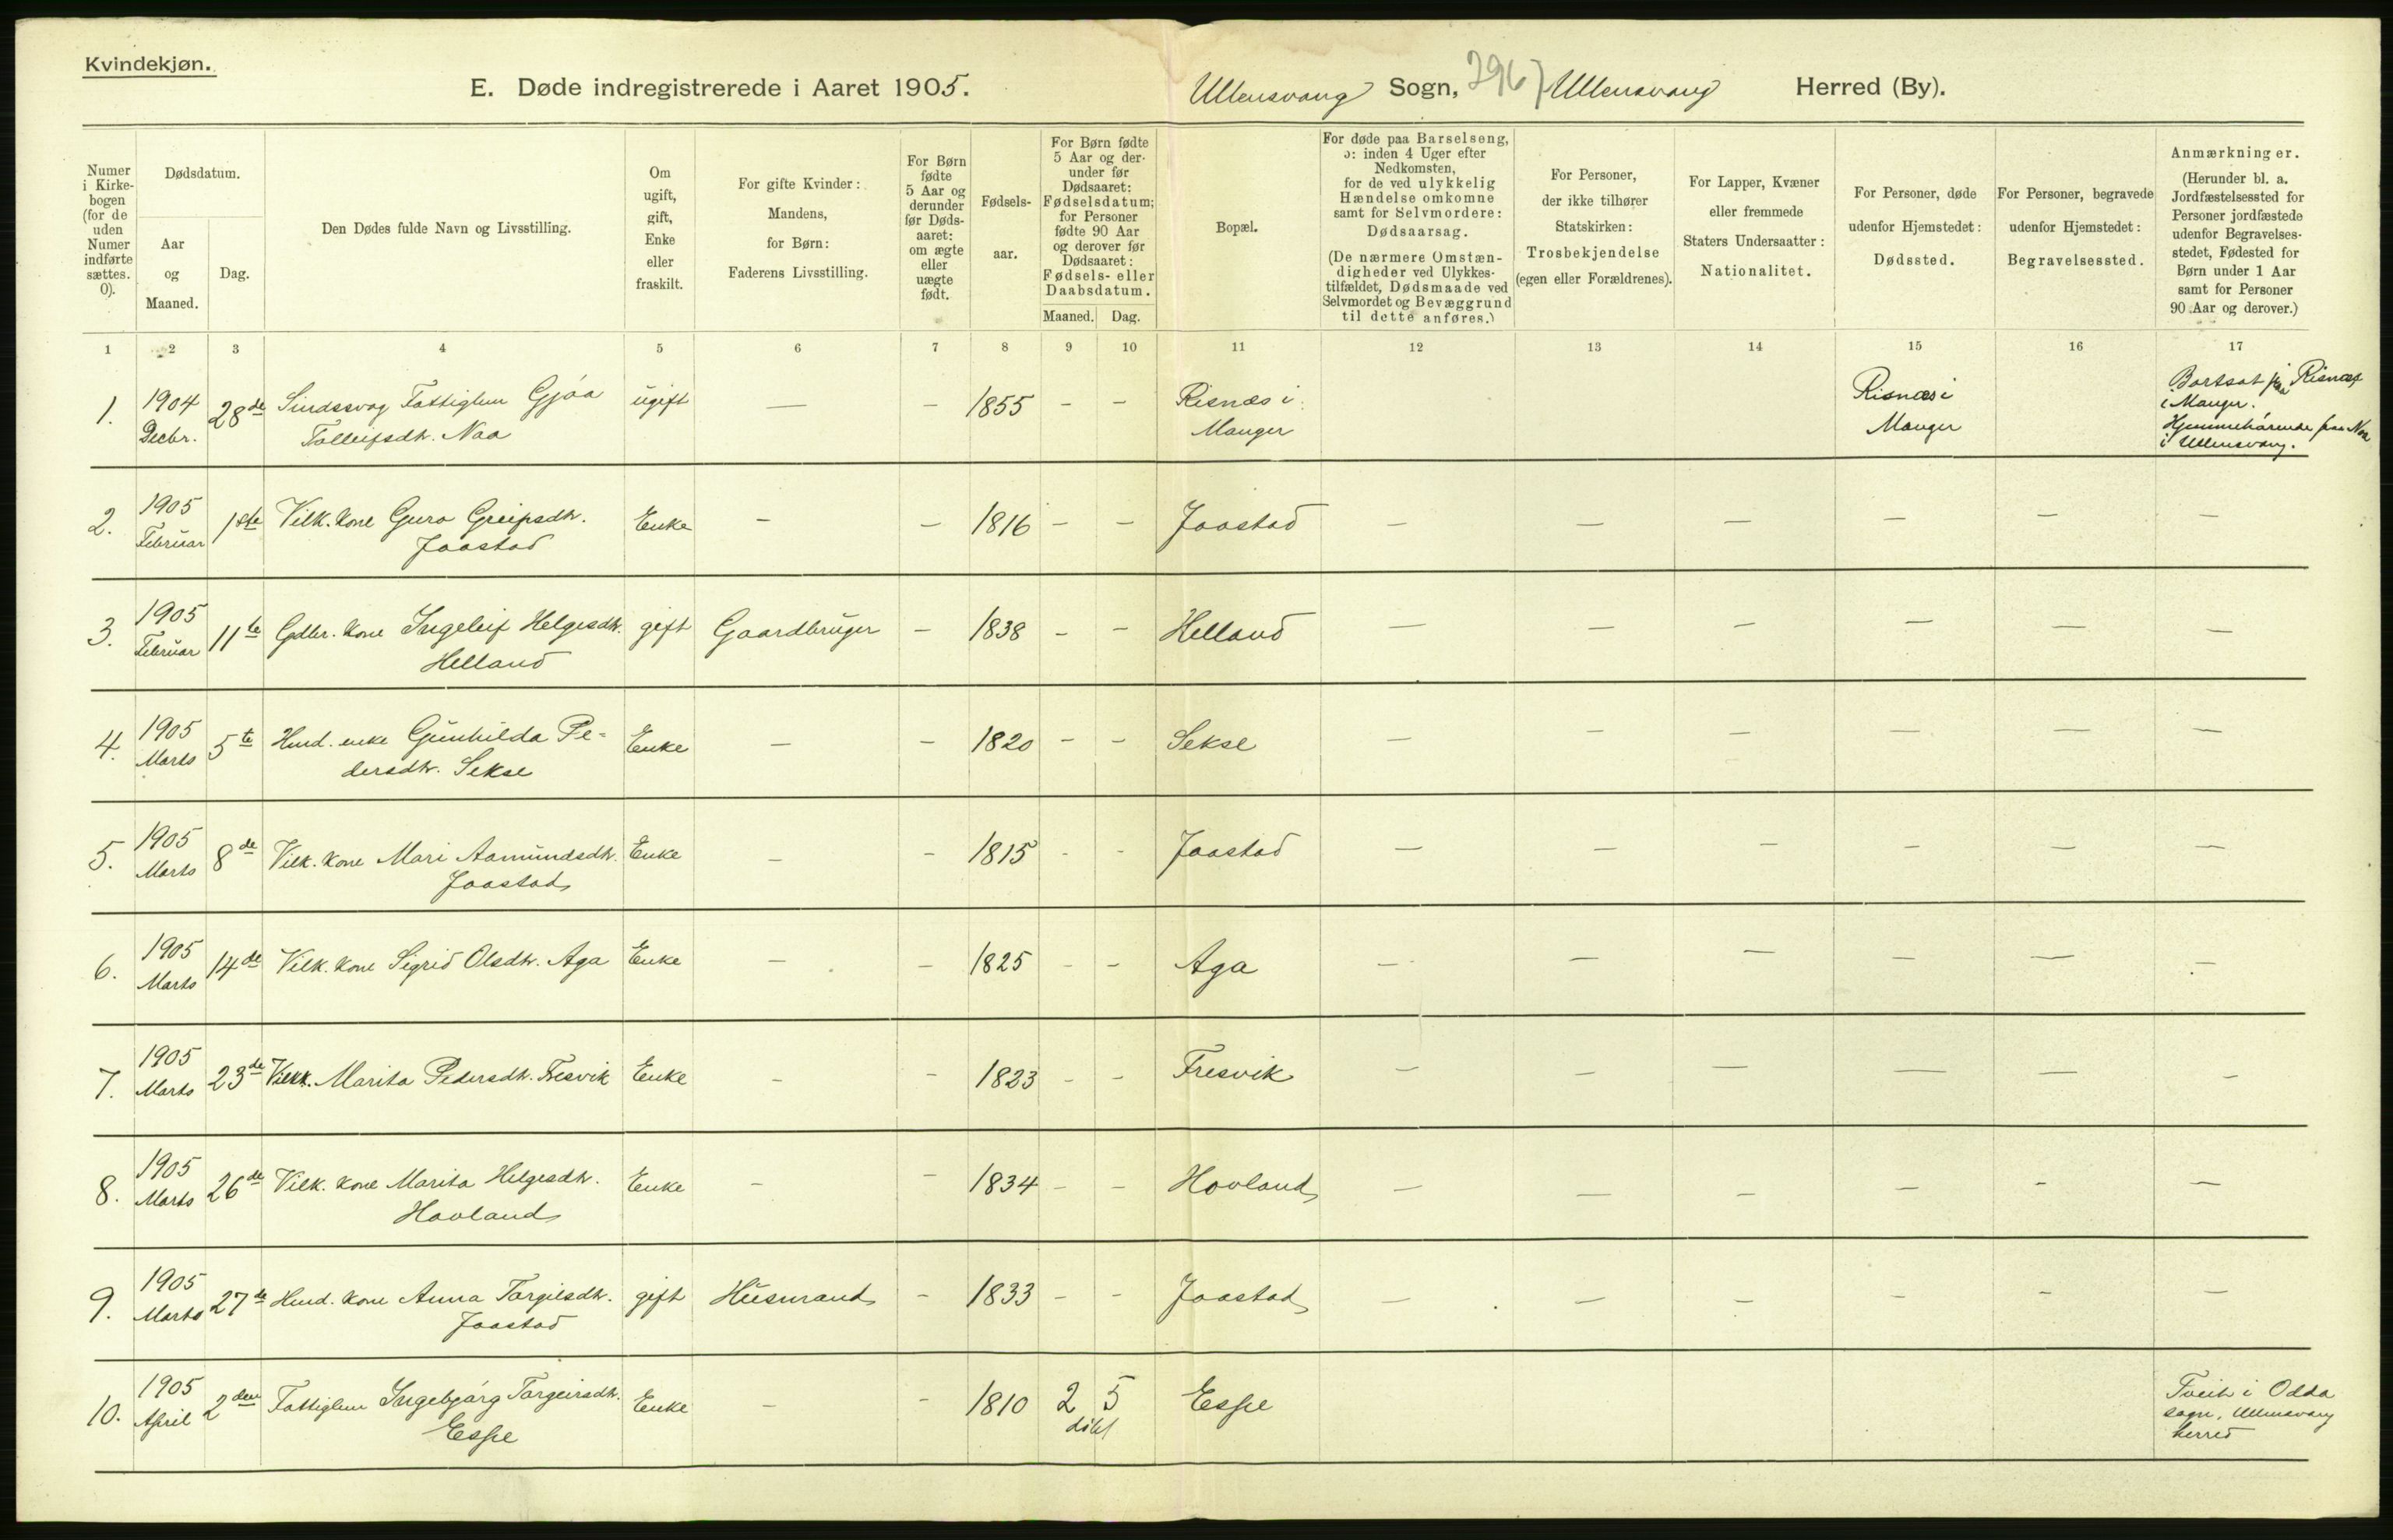 Kvindekjøn.
E. Døde indregistrerede i Aaret 1905.
Ullensvang Sogn, 296) Ullensvang Herred (By).
Numer i Kirkebogen (for de uden Numer indførte sættes. 0).
Dødsdatum.
Aar og Maaned.
Dag.
Den Dødes fulde Navn og Livsstilling.
Om ugift, gift, Enke eller fraskilt.
For gifte Kvinder: Mandens, for Børn: Faderens Livsstilling.
For Børn fødte 5 Aar og derunder før Dødsaaret: om ægte eller uægte født.
Fødselsaar.
For Børn fødte 5 Aar og derunder før Dødsaaret: Fødselsdatum; for Personer fødte 90 Aar og derover før Dødsaaret: Fødsels- eller Daabsdatum.
Maaned. Dag.
Bopæl.
For døde paa Barselseng, ɔ: inden 4 Uger efter Nedkomsten, for de ved ulykkelig Hændelse omkomne samt for Selvmordere: Dødsaarsag.
(De nærmere Omstændigheder ved Ulykkestilfældet, Dødsmaade ved Selvmordet og Bevæggrund til dette anføres.)
For Personer, der ikke tilhører Statskirken: Trosbekjendelse (egen eller Forældrenes).
For Lapper, Kvæner eller fremmede Staters Undersaatter: Nationalitet.
For Personer, døde udenfor Hjemstedet: Dødssted.
For Personer, begravede udenfor Hjemstedet: Begravelsessted.
Anmærkninger.
(Herunder bl. a. Jordfæstelsessted for Personer jordfæstede udenfor Begravelsesstedet, Fødested for Børn under 1 Aar samt for Personer 90 Aar og derover.)
1 2 3 4 5 6 7 8 9 10 11 12 13 14 15 16 17
1. 1904 Decbr. 28de Sindssvag Fattiglem Gjøa Tolleifsdtr. Naa ugift — — 1855 - - Risnæs i Manger Risnæs i Manger Bortsat paa Risnæs i Manger. Hjemmehørende paa Naa i Ullensvang.
2. 1905 Februar 1ste Vilk. kone Guro Greipsdtr. Jaastad Enke - - 1816 - - Jaastad — — — — — —
3. 1905 Februar 11te Gdbr. kone Ingeleif Helgesdtr. Helland gift Gaardbruger - 1838 - - Helland — — — — — —
4. 1905 Marts 5te Hmd. enke Gunhilda Pedersdtr. Sekse Enke — - 1820 - - Sekse — — — — — —
5. 1905 Marts 8de Vilk. kone Mari Aamundsdtr. Jaastad Enke - - 1815 - - Jaastad — — — — — —
6. 1905 Marts 14de Vilk. kone Sigrid Olsdtr. Aga Enke - - 1825 - - Aga — — — — — —
7. 1905 Marts 23de Vilkk. Marita Pedersdtr. Fresvik Enke - - 1823 - - Fresvik — — — — — -
8. 1905 Marts 26de Vilk. kone Marita Helgesdtr. Hovland Enke - - 1834 - - Hovland — — — — - —
9. 1905 Marts 27de Hmd. kone Anna Torgilsdtr. Jaastad gift Husmand - 1833 - - Jaastad — — — — — —
10. 1905 April 2den Fattiglem Ingebjørg Torgeirsdtr. Espe Enke - - 1810 2 5 døbt Espe Tveit i Odda sogn, Ullensvang herred